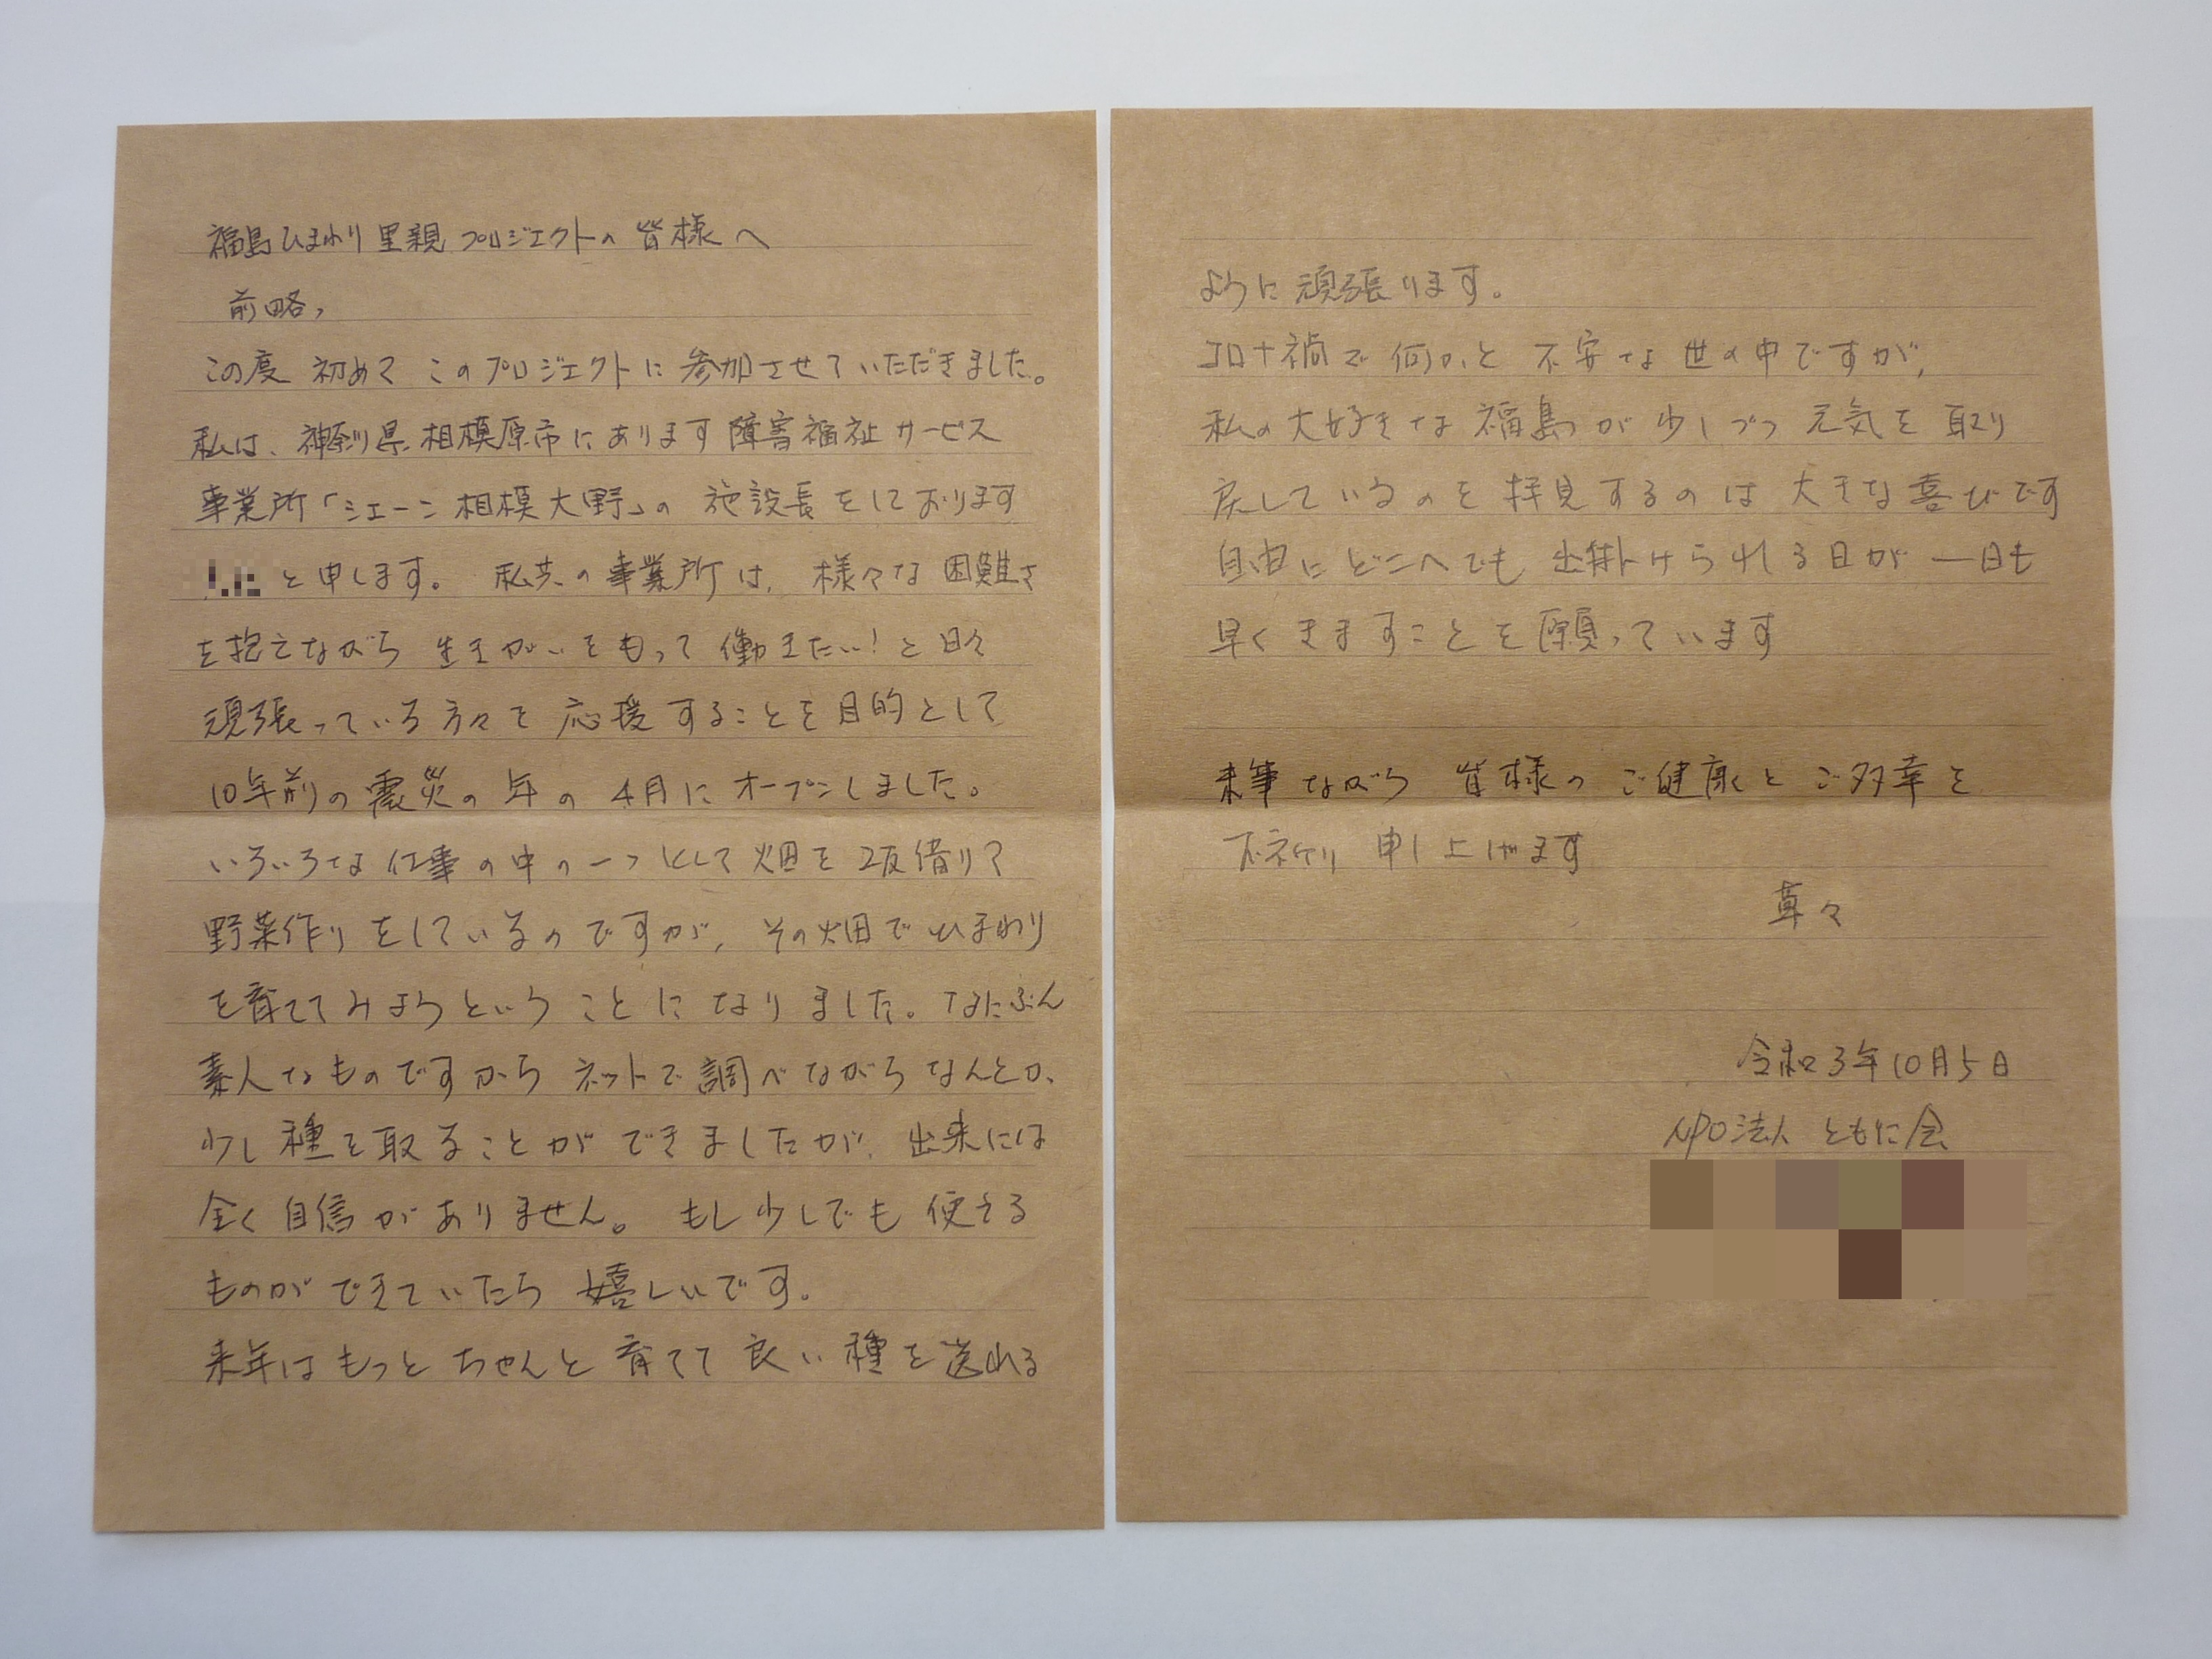 福島ひまわり里親プロジェクトの皆様へ
前略、
この度 初めて このプロジェクトに 参加させていただきました。
私は、神奈川県相模原市にあります障害福祉サービス
事業所「シェーン相模大野」の 施設長をしております
と申します。 私共の事業所は、様々な困難さ
を抱えながら 生きがいをもって 働きたい!と日々
頑張っている方々を 応援することを目的として
10年前の震災の年の4月にオープンしました。
いろいろな仕事の中の一つとして畑を2反借りて
野菜作りをしているのですが、その畑でひまわり
を育ててみようということになりました。なにぶん
素人なものですからネットで調べながらなんとか、
少し種を取ることができましたが、出来には
全く自信がありません。 もし少しでも使える
ものができていたら 嬉しいです。
来年はもっとちゃんと育てて良い種を送れる
ように頑張ります。
コロナ禍で何かと不安な世の中ですが、
私の大好きな福島が少しづつ元気を取り
戻しているのを拝見するのは大きな喜びです
自由にどこへでも出掛けられる日が一日も
早くきますことを願っています
末筆ながら 皆様のご健康とご多幸を
お祈り申し上げます
草々
令和3年10月5日
NPO法人 ともに会